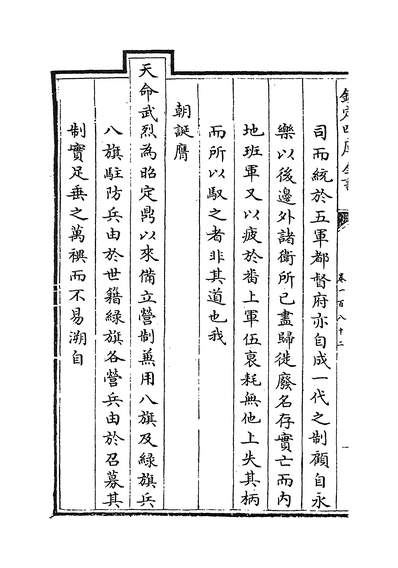 欽定四庫全書
卷一百八十二
一
司而統於五軍都督府亦自成一代之制顧自永
樂以後邊外諸衛所已盡歸徙廢名存實亡而内
地班軍又以疲於畨上軍伍衰耗無他上失其柄
而所以馭之者非其道也我
朝誕膺
天命武烈為昭定鼎以來備立營制兼用八旗及緑旗兵
八旗駐防兵由於世籍緑旗各營兵由於召募其
制實足垂之萬禩而不易溯自